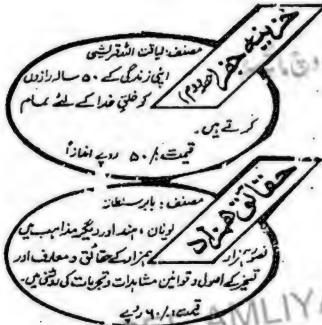 خزینہ جفر
(حصہ دوم)
مصنف: لیاقت اللہ قریشی
اپنی زندگی کے ۵۰ سالہ رازوں
کو خلق خدا کے لئے تمام
کرتے ہیں۔
قیمت: /۵۰ روپے
حقائق ہمزاد
مصنف: بابر سلطانہ
یونان، ہند اور دیگر مذاہب میں
تصور ہمزاد ہمزاد کے حقائق و معارف اور
تسخیر کے اصول و قوانین مشاہدات و تجربات کی روشنی میں۔
قیمت: /۶۰ روپے
AMLIYA